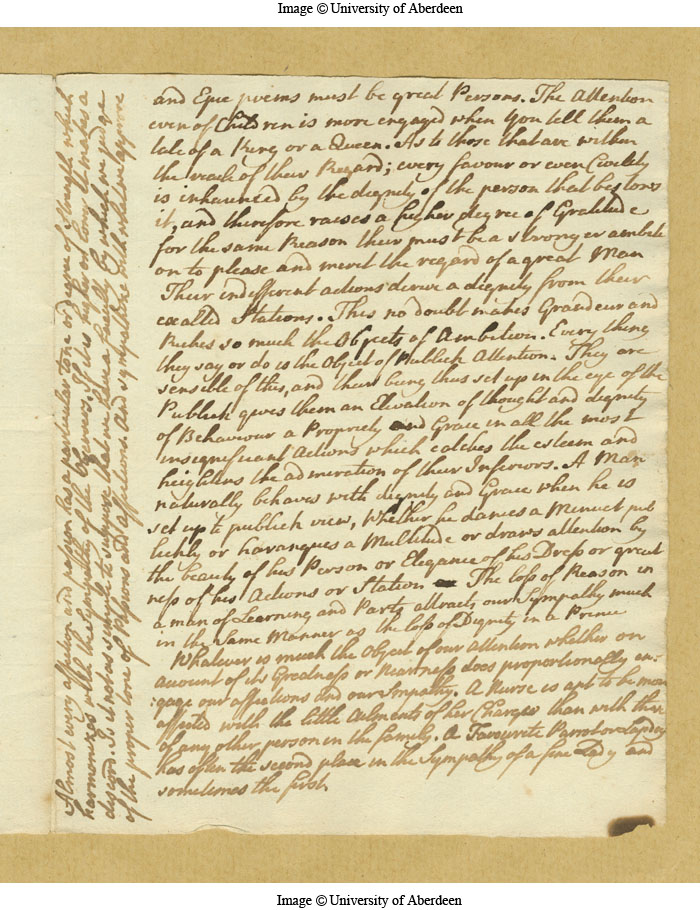 Image © University of Aberdeen
and Epic poems must be great Persons. The Attention
even of Children is more engaged when You tell them a
tale of a King or a Queen. As to those that are within
the reach of their Regard; every favour or even Civility
is inhaunced by the dignity of the person that bestows
it, and therefore raises a higher degree of Gratitude
for the same Reason their must be a stronger ambiti
on to please and merit the regard of a great Man
Their indifferent actions derive a dignity from their
exalted Stations. This no doubt makes Grandeur and
Riches so much the Objects of Ambition. Every thing
they say or do is the Object of Publick Attention. They are
sensible of this, and their being thus set up in the eye of the
Publick gives them an Elevation of thought and dignity
of Behaviour a Propriety and Grace in all the most
insignificant Actions which catches the esteem and
heightens the admiration of their Inferiors. A Man
naturally behaves with dignity and Grace when he is
set up to publick view, Whether he dances a Minuet pub
lickly or harangues a Multitude or draws attention by
the beauty of his Person or Elegance of his Dress or great
ness of his Actions or Station The loss of Reason in
a man of Learning and Parts attracts our Sympathy much
in the Same Manner as the loss of Dignity in a Prince
Whatever is much the Object of our attention whether on
account of its Greatness or Nearness does proportionally en=
:gage our affections and our Sympathy. A Nurse is apt to be more
affected with the little Ailments of her Charges than with those
of any other person in the family. A Favourite Parrot or Lapdog
has often the second place in the Sympathy of a fine Lady and
sometimes the first.
Almost every affection and passion has a particular tone or degree of strength which
harmonizes with the Sympathy of the Observers. If it is higher or lower it makes a
discord. Is it not as simple to suppose that we have a faculty by which we judge
of the proper tone of Passions and affections. And sympathize with what we approve
Image © University of Aberdeen